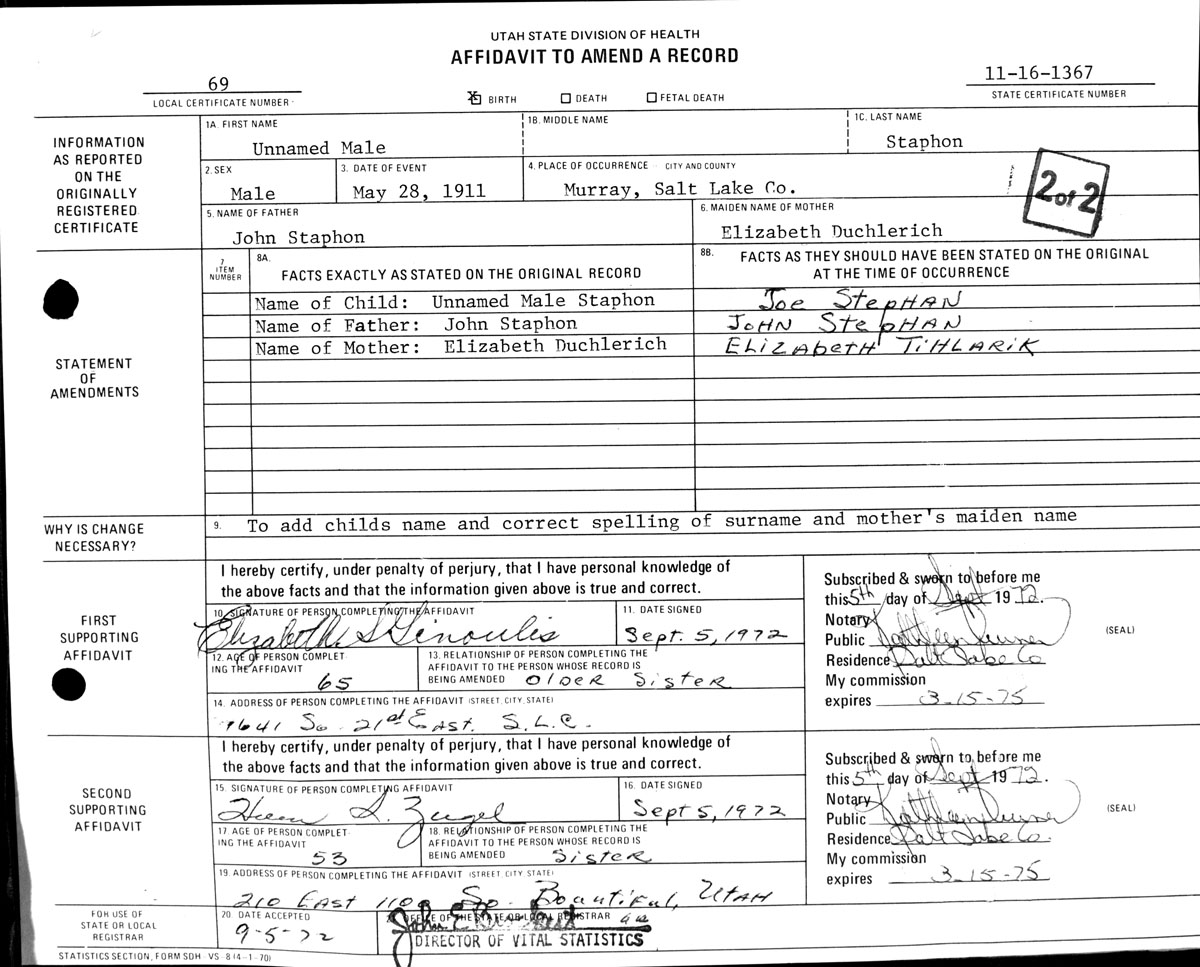 UTAH STATE DIVISION OF HEALTH
AFFIDAVIT TO AMEND A RECORD
69
LOCAL CERTIFICATE NUMBER
X BIRTH DEATH FETAL DEATH
11-16-1367
STATE CERTIFICATE NUMBER
INFORMATION
AS REPORTED
ON THE
ORIGINALLY
REGISTERED
CERTIFICATE
1A. FIRST NAME
Unnamed Male
1B. MIDDLE NAME
1C. LAST NAME
Staphon
2. SEX
Male
3. DATE OF EVENT
May 28, 1911
4. PLACE OF OCCURRENCE - CITY AND COUNTY
Murray, Salt Lake Co.
2 of 2
5. NAME OF FATHER
John Staphon
6. MAIDEN NAME OF MOTHER
Elizabeth Duchlerich
STATEMENT
OF
AMENDMENTS
7
ITEM
NUMBER
8A.
FACTS EXACTLY AS STATED ON THE ORIGINAL RECORD
8B. FACTS AS THEY SHOULD HAVE BEEN STATED ON THE ORIGINAL
AT THE TIME OF OCCURRENCE
Name of Child: Unnamed Male Staphon
JOE StepHAN
Name of Father: John Staphon
JoHN StepHAN
Name of Mother: Elizabeth Duchlerich
ELIZAbeTH TIHLARIK
WHY IS CHANGE
NECESSARY?
9. To add childs name and correct spelling of surname and mother's maiden name
FIRST
SUPPORTING
AFFIDAVIT
I hereby certify, under penalty of perjury, that I have personal knowledge of
the above facts and that the information given above is true and correct.
10. SIGNATURE OF PERSON COMPLETING THE AFFIDAVIT
Elizabeth S Ginoulis
11. DATE SIGNED
Sept. 5, 1972
12. AGE OF PERSON COMPLET
ING THE AFFIDAVIT
65
13. RELATIONSHIP OF PERSON COMPLETING THE
AFFIDAVIT TO THE PERSON WHOSE RECORD IS
BEING AMENDED OlDER SisteR
14. ADDRESS OF PERSON COMPLETING THE AFFIDAVIT (STREET, CITY, STATE)
So. 21st EAST. S.L.C.
Subscribed & sworn to before me
this 5th day of Sept 1972.
Notary
Public Kathleen
Residence Salt Lake Co
My commission
expires 3-15-75
(SEAL)
SECOND
SUPPORTING
AFFIDAVIT
I hereby certify, under penalty of perjury, that I have personal knowledge of
the above facts and that the information given above is true and correct.
15. SIGNATURE OF PERSON COMPLETING AFFIDAVIT
S.
16. DATE SIGNED
Sept 5, 1972
17. AGE OF PERSON COMPLET
ING THE AFFIDAVIT
53
18. RELATIONSHIP OF PERSON COMPLETING THE
AFFIDAVIT TO THE PERSON WHOSE RECORD IS
BEING AMENDED SisteR
19. ADDRESS OF PERSON COMPLETING THE AFFIDAVIT (STREET, CITY, STATE)
210 EAST 1100 So. Bountiful, UTAH
Subscribed & sworn to before me
this 5th day of Sept 1972.
Notary
Public Kathleen
Residence Salt Lake Co.
My commission
expires 3-15-75
(SEAL)
FOR USE OF
STATE OR LOCAL
REGISTRAR
20. DATE ACCEPTED
9-5-72
OFFICE OF THE STATE OR LOCAL REGISTRAR
John E.
DIRECTOR OF VITAL STATISTICS
STATISTICS SECTION, FORM SDH - VS - 8 (4-1-70)